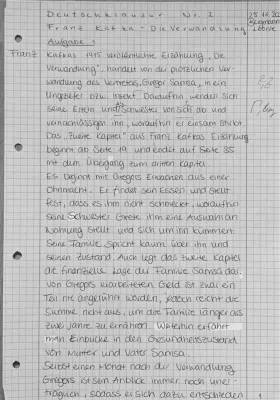 Deutschklausur Nr. 2
Franz Kafka - Die Verwandlung
Aufgabe 1
Franz Kafkas 1915 veröffentlichte Erzählung „Die
Verwandlung“, handelt von der plötzlichen Ver-
wandlung des Vertreters, Gregor Samsa, in ein
Ungeziefer bzw. Insekt. Daraufhin wenden sich
seine Eltern und Schwester von sich ab und
vernachlässigen ihn, woraufhin er einsam stirbt.
Das „zweite Kapitel“ aus Franz Kafkas Erzählung
beginnt ab Seite 19 und endet auf Seite 35
mit dem Übergang zum dritten Kapitel.
Es beginnt mit Gregors Erwachen aus einer
Ohnmacht. Er findet sein Essen und stellt
fest, dass es ihm nicht schmeckt, woraufhin
seine Schwester Grete ihm eine Auswahl an
Nahrung stellt und sich um ihn kümmert.
Seine Familie spricht kaum über ihn und
seinen Zustand. Auch legt das zweite Kapitel
die finanzielle Lage der Familie Samsa dar.
Von Gregors erarbeiteten Geld ist zwar ein
Teil mit angeführt worden, jedoch reicht die
Summe nicht aus, um die Familie länger als
zwei Jahre zu ernähren. Weiterhin erfährt
man Eindrücke in den Gesundheitszustand
von Mutter und Vater Samsa.
Selbst einen Monat nach der Verwandlung
Gregors ist sein Anblick immer noch uner-
träglich, sodass er sich dazu entschieden